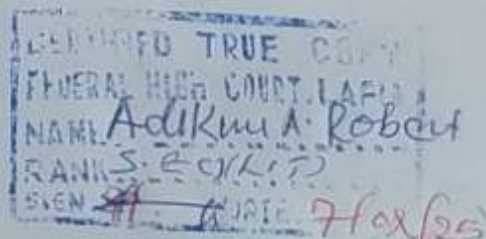 CERTIFIED TRUE COPY
FEDERAL HIGH COURT, LAFIA
NAME Adikwu A. Robert
RANK
SIGN DATE 7/02/25